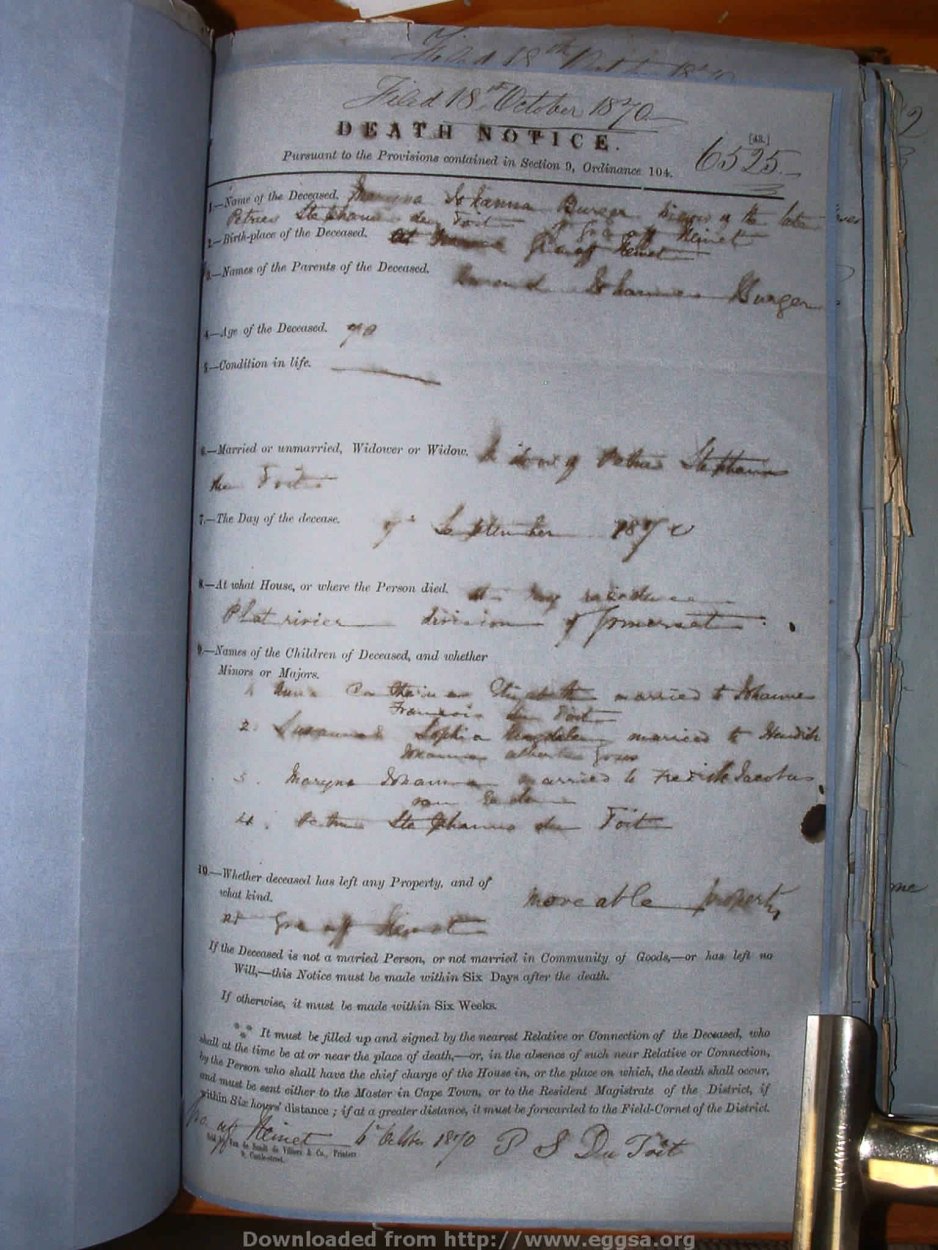 Filed 18th Oct 1870
Filed 18th October 1870
DEATH NOTICE.
[48.]
6525
Pursuant to the Provisions contained in Section 9, Ordinance 104.
1.—Name of the Deceased. Maryna Johanna Burger Widow of the late
Petrus Stephanus du Toit of Graaff Reinet
2.—Birth-place of the Deceased. At Graaff Reinet
3.—Names of the Parents of the Deceased. Johannes Burger
4.—Age of the Deceased. 70
5.—Condition in life.
6.—Married or unmarried, Widower or Widow. Widow of Petrus Stephanus
du Toit
7.—The Day of the decease. September 1870
8.—At what House, or where the Person died. At my residence
Plat rivier division of Somerset
9.—Names of the Children of Deceased, and whether
Minors or Majors.
1. Anna Catharina Elizabeth married to Johannes
Francois du Toit
2. Susanna Sophia Magdalena married to Hendrik
albertus Gous
3. Maryna Johanna married to Fredrik Jacobus
van
4. Petrus Stephanus du Toit
10.—Whether deceased has left any Property, and of
what kind. moveable property
at Graaff Reinet
If the Deceased is not a maried Person, or not married in Community of Goods,—or has left no
Will,—this Notice must be made within Six Days after the death.
If otherwise, it must be made within Six Weeks.
It must be filled up and signed by the nearest Relative or Connection of the Deceased, who
shall at the time be at or near the place of death,—or, in the absence of such near Relative or Connection,
by the Person who shall have the chief charge of the House in, or the place on which, the death shall occur,
and must be sent either to the Master in Cape Town, or to the Resident Magistrate of the District, if
within Six hours' distance; if at a greater distance, it must be forwarded to the Field-Cornet of the District.
Graaff Reinet 6 1870 P S Du Toit
Van de Sandt de Villiers & Co., Printers
9, Castle-street.
Downloaded from http://www.eggsa.org